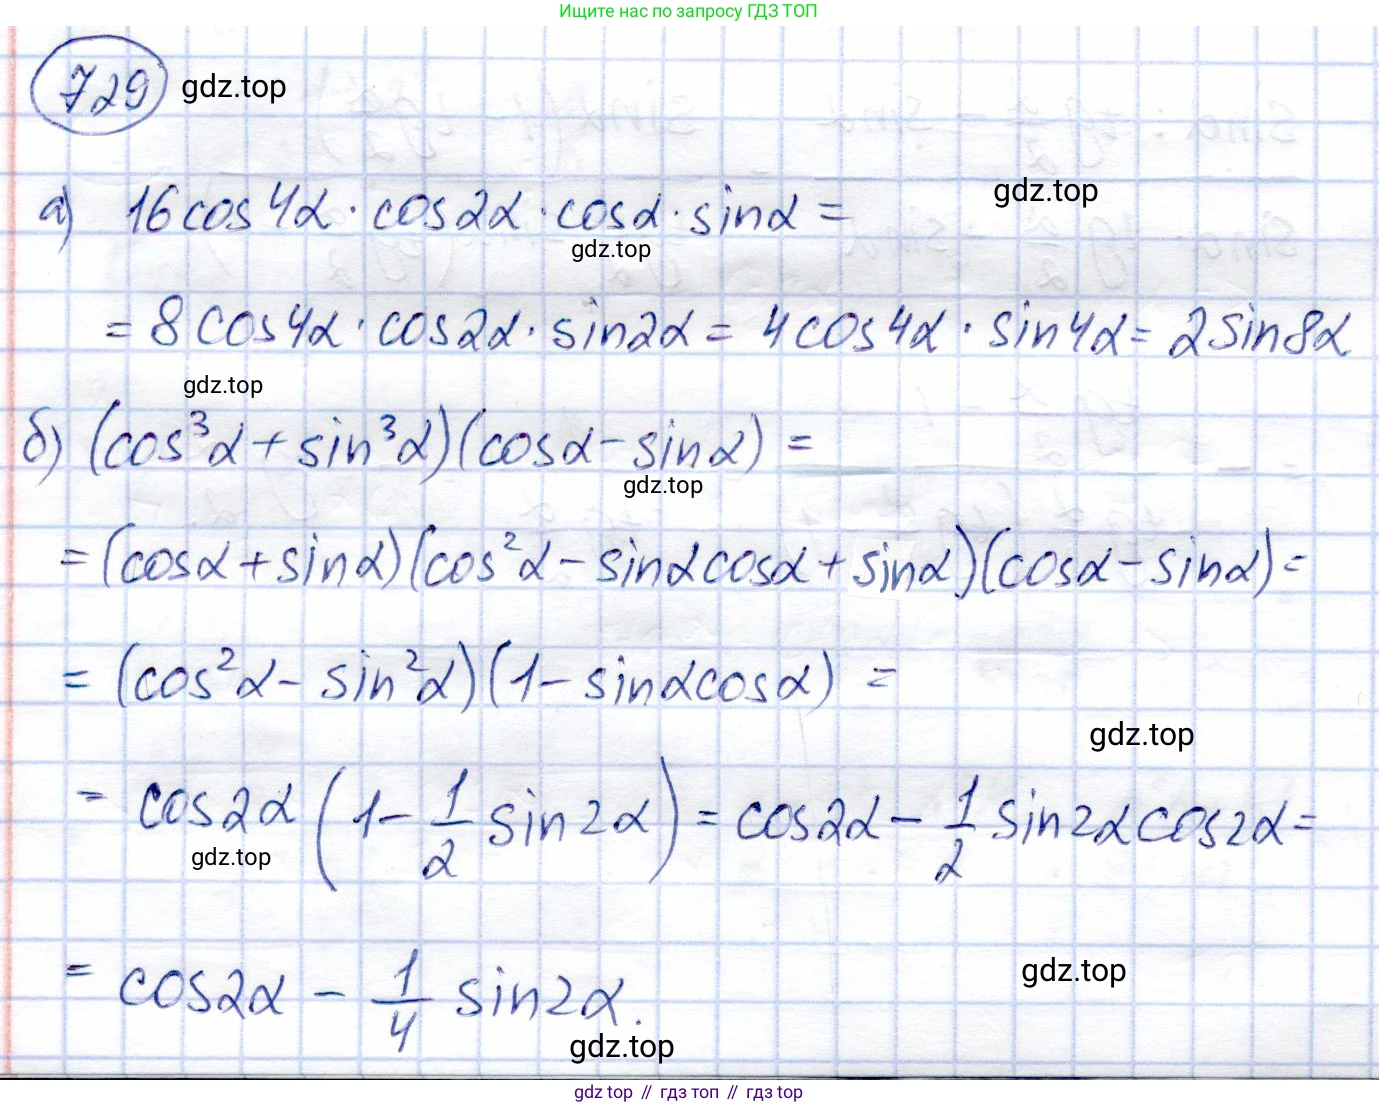 Ищите нас по запросу ГДЗ ТОП
729 gdz.top
gdz.top
а) 16cos4α · cos2α · cosα · sinα =
gdz.top
= 8cos4α · cos2α · sin2α = 4cos4α · sin4α = 2sin8α
gdz.top
б) (cos³α + sin³α)(cosα - sinα) =
gdz.top
= (cosα + sinα)(cos²α - sinαcosα + sinα)(cosα - sinα) =
= (cos²α - sin²α)(1 - sinαcosα) =
gdz.top
= cos2α (1 - 1/2 sin2α) = cos2α - 1/2 sin2αcos2α =
gdz.top
gdz.top
= cos2α - 1/4 sin2α.
gdz.top
gdz top // гдз топ // гдз top